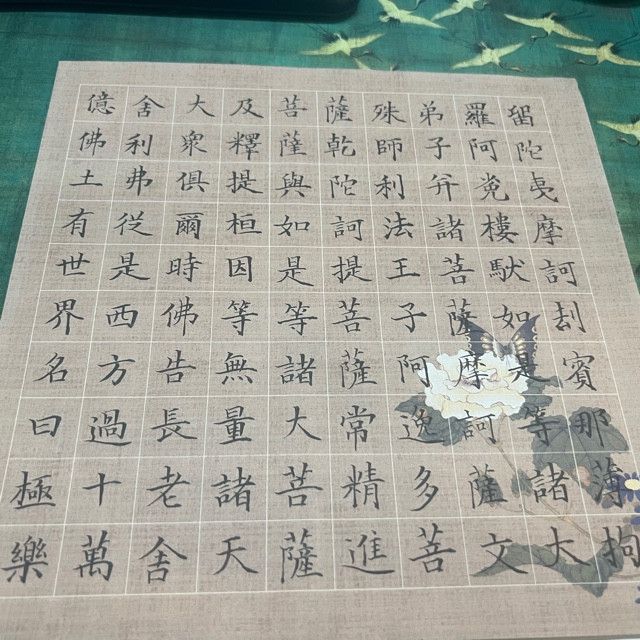 留陀夷摩訶劫賓那薄拘
羅阿㝹樓馱如是等諸大
弟子并諸菩薩摩訶薩文
殊師利法王子阿逸多菩
薩乾陀訶提菩薩常精進
菩薩與如是等諸大菩薩
及釋提桓因等無量諸天
大衆俱爾時佛告長老舍
舍利弗從是西方過十萬
億佛土有世界名曰極樂